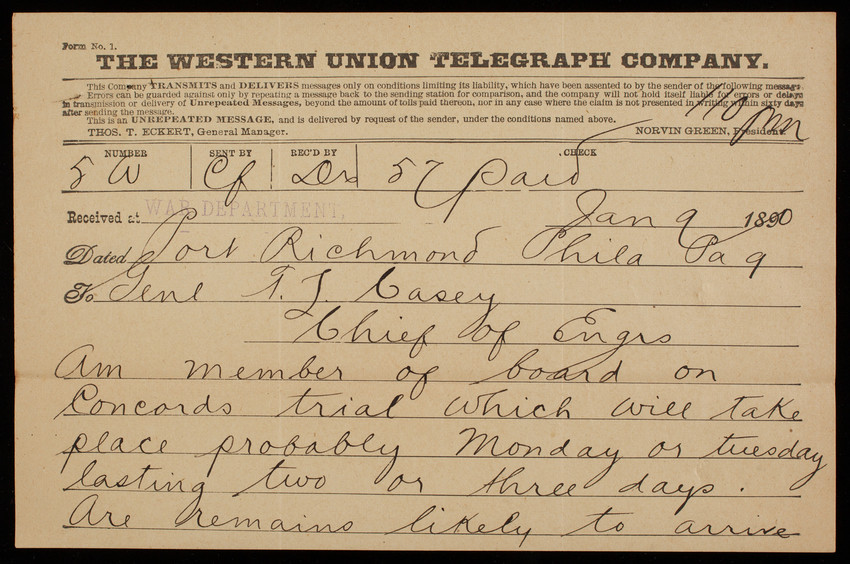 Form No. 1.
THE WESTERN UNION TELEGRAPH COMPANY.
This Company TRANSMITS and DELIVERS messages only on conditions limiting its liability, which have been assented to by the sender of the following message.
Errors can be guarded against only by repeating a message back to the sending station for comparison, and the company will not hold itself liable for errors or delays
in transmission or delivery of Unrepeated Messages, beyond the amount of tolls paid thereon, nor in any case where the claim is not presented in writing within sixty days
after sending the message.
This is an UNREPEATED MESSAGE, and is delivered by request of the sender, under the conditions named above.
THOS. T. ECKERT, General Manager. NORVIN GREEN, President.
pm
NUMBER SENT BY REC'D BY CHECK
5 W Cf Dr 57 Paid
Received at WAR DEPARTMENT, Jan 9 1890
Dated Port Richmond Phila Pa 9
To Genl T. L. Casey
Chief of Engrs
Am member of board on
Concords trial which will take
place probably Monday or tuesday
lasting two or three days.
Are remains likely to arrive